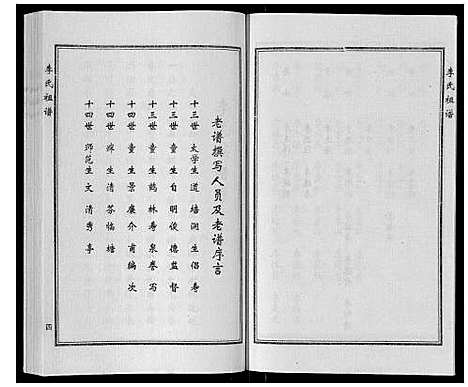 李氏祖谱
老谱撰写人员及老谱序言
十三世 太学生 道培渊生倡寿
十三世 童生 自明俊德监督
十三世 童生 鹤林寿泉誊写
十四世 童生 景廉介甫编次
十四世 庠生 清芬临塘
十四世 师范生 文清秀亭
四
李氏祖谱